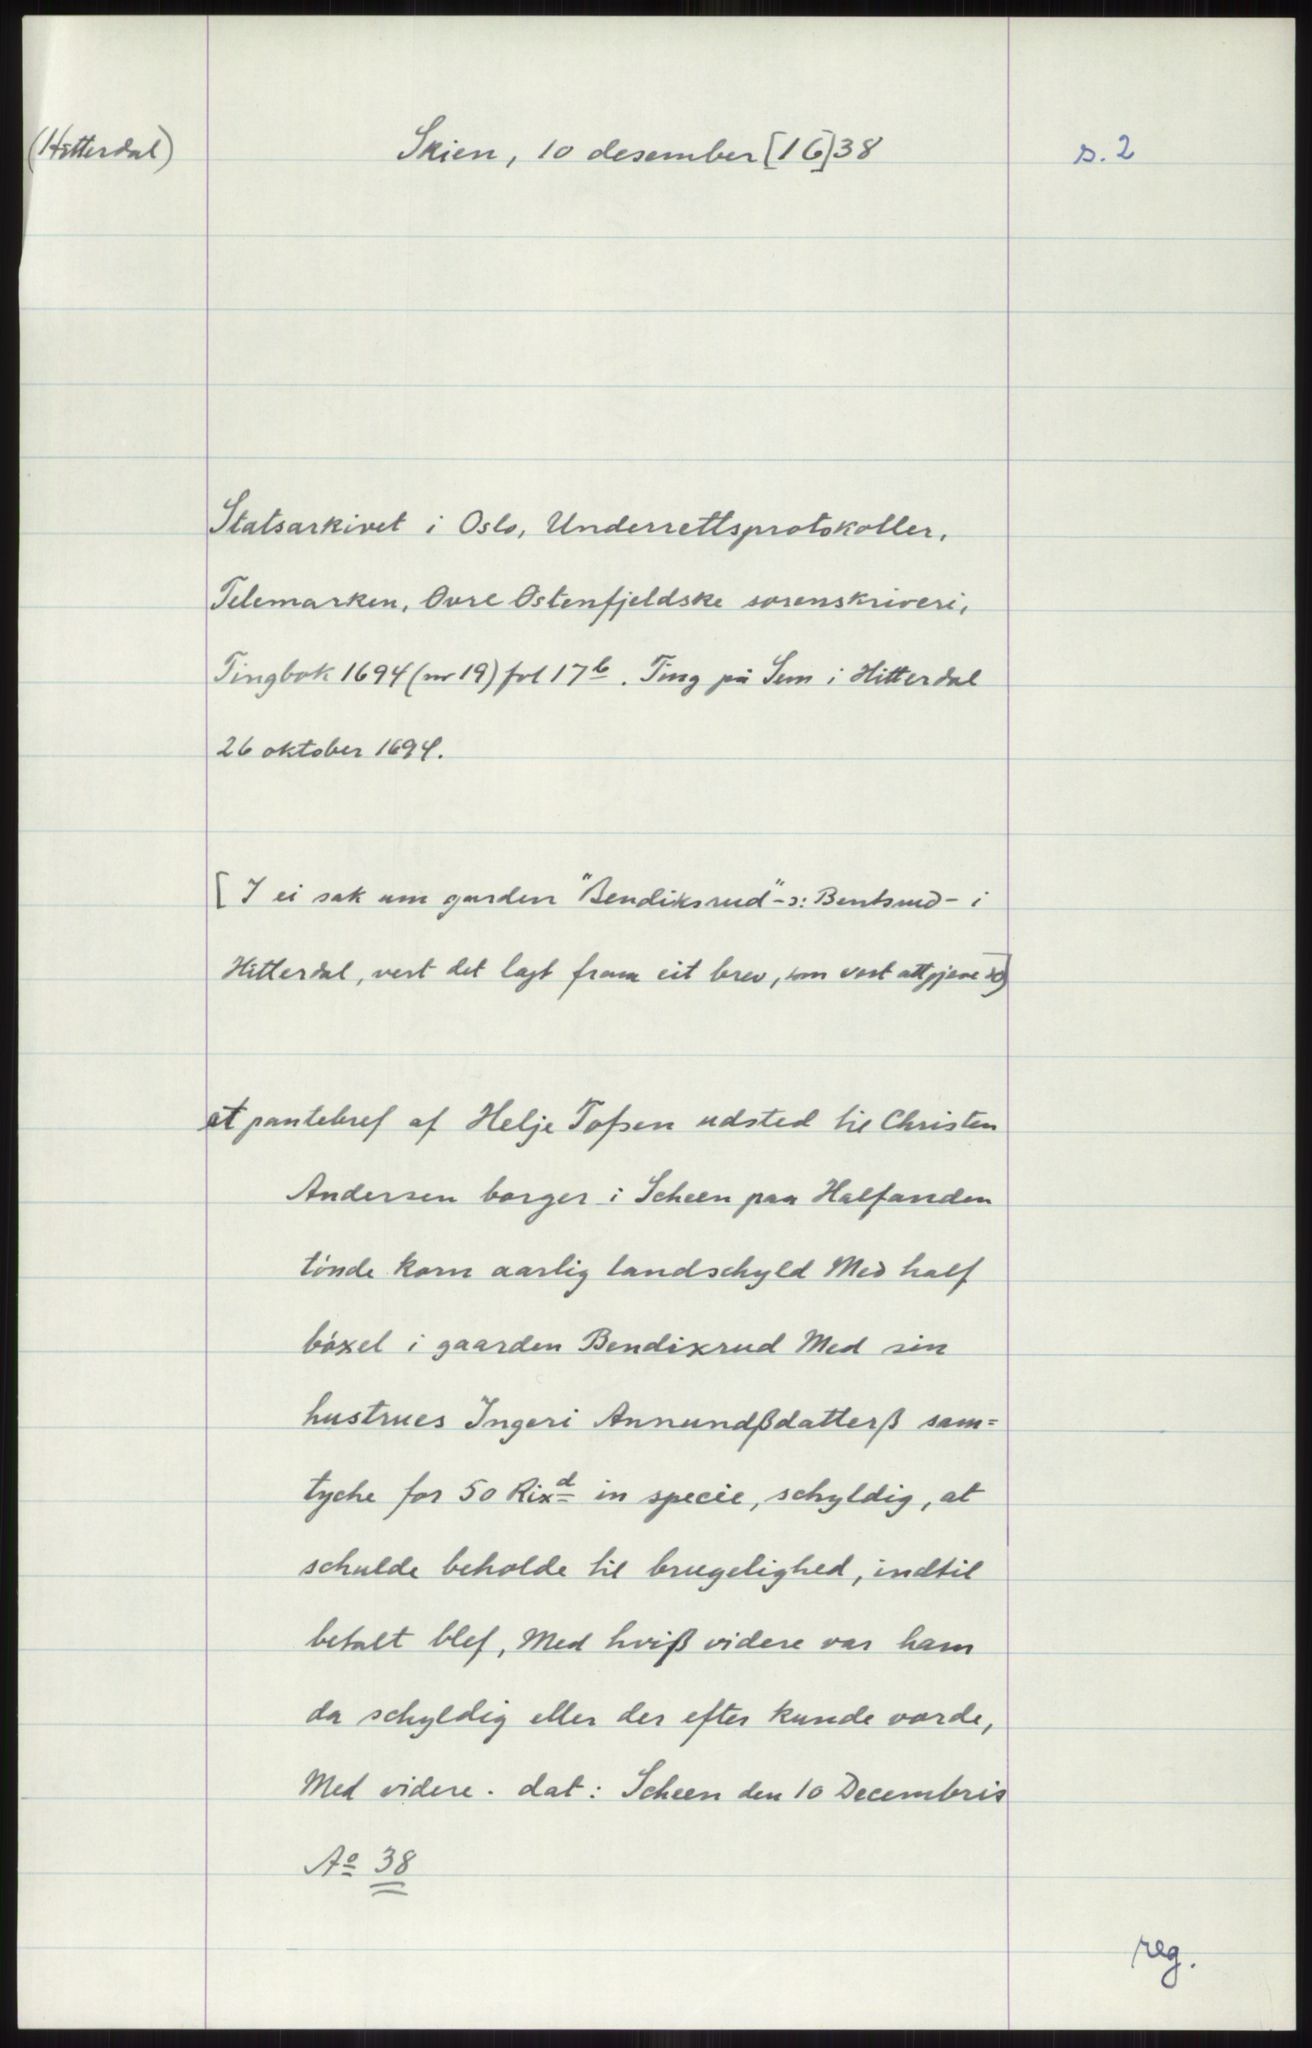 (Hitterdal)
Skien, 10 desember [16]38
s. 2
Statsarkivet i Oslo, Underrettsprotokoller,
Telemarken, Øvre Østenfjeldske sorenskriveri,
Tingbok 1694 (nr 19) fol 17b. Ting på Sem i Hitterdal
26 oktober 1694.
[I ei sak um garden "Bendiksrud" -ɔ: Bentsrud - i
Hitterdal, vert det lagt fram eit brev, som vert attgjeve so]
et pantebref af Helje Tofsen udsted til Christen
Andersen borger i Scheen paa Halfanden
tønde korn aarlig landschyld Med half
bøxel i gaarden Bendixrud Med sin
hustrues Ingeri Annundßdatterß sam=
tyche for 50 Rixd in specie, schyldig, at
schulde beholde til brugelighed, indtil
betalt blef, Med hviß videre var ham
da schyldig eller der efter kunde vorde,
Med videre. dat: Scheen den 10 Decembris
Ao 38
reg.